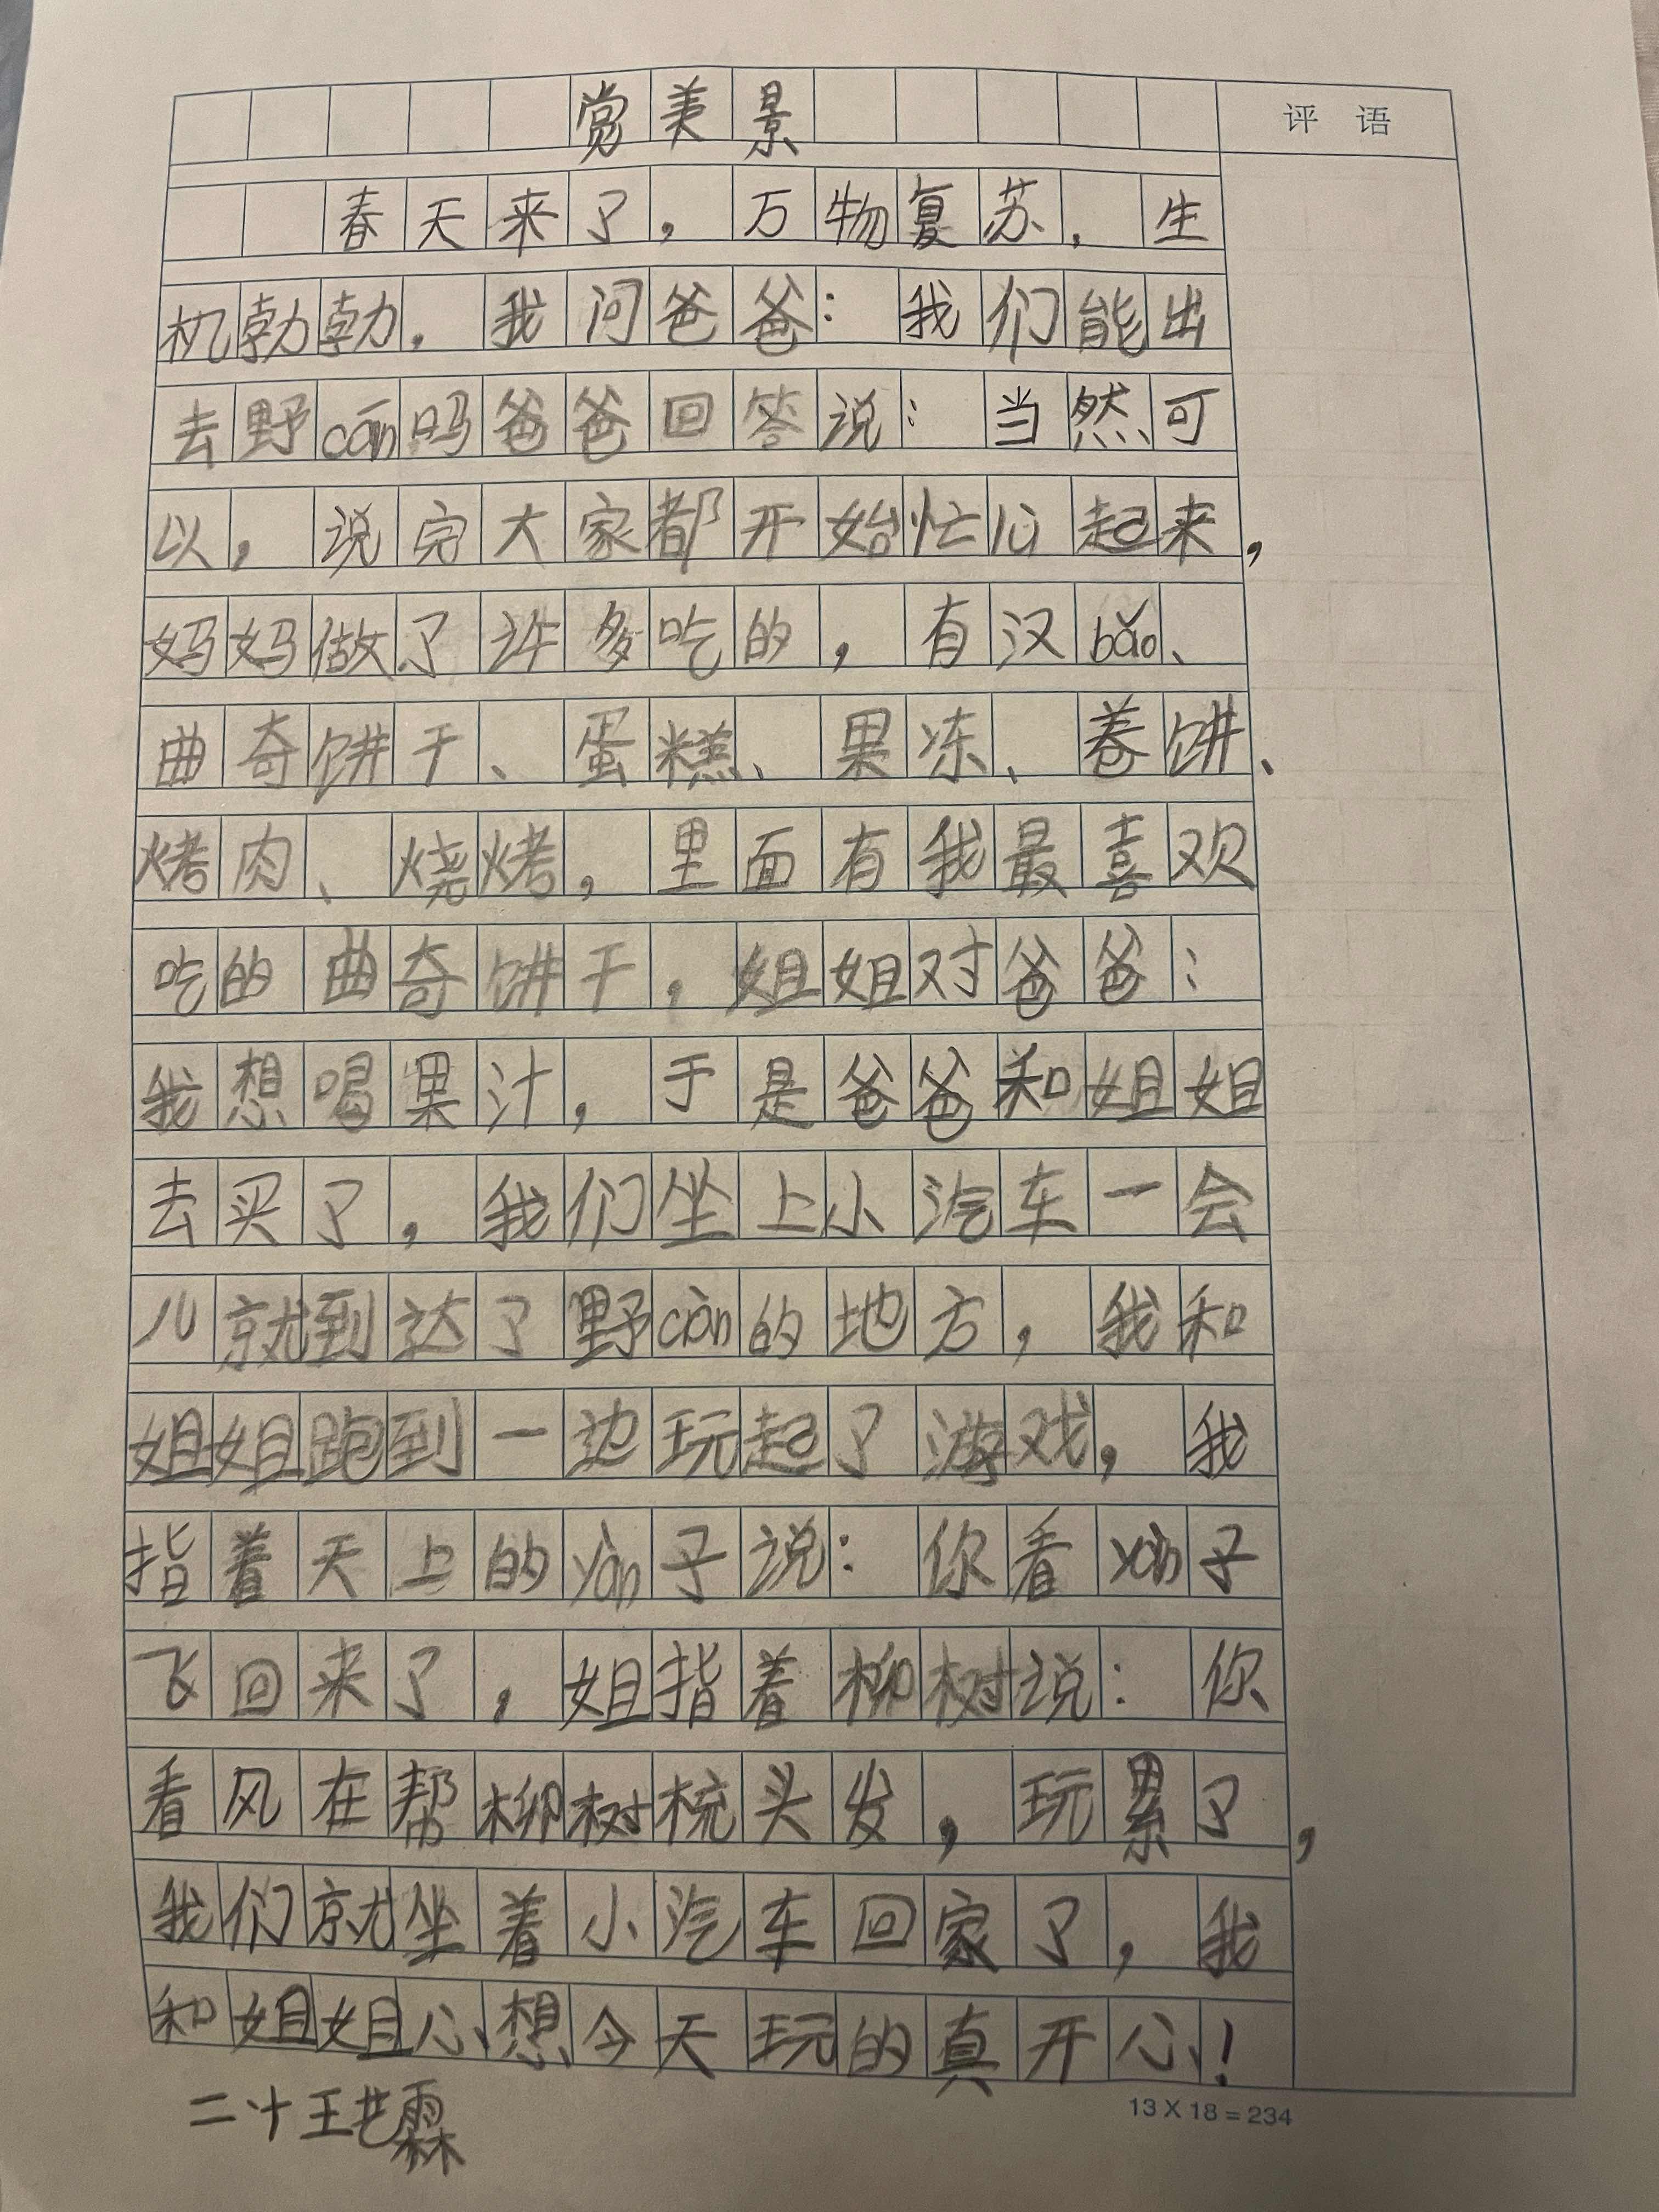 赏美景
评 语
春天来了，万物复苏，生
机勃勃。我问爸爸：我们能出
去野cān吗爸爸回答说：当然可
以，说完大家都开始忙心起来，
妈妈做了许多吃的，有汉bǎo、
曲奇饼干、蛋糕、果冻、卷饼、
烤肉、烧烤，里面有我最喜欢
吃的曲奇饼干，姐姐对爸爸：
我想喝果汁，于是爸爸和姐姐
去买了，我们坐上小汽车一会
儿就到达了野cān的地方，我和
姐姐跑到一边玩起了游戏，我
指着天上的yàn子说：你看yàn子
飞回来了，姐指着柳树说：你
看风在帮柳树梳头发，玩累了，
我们就坐着小汽车回家了，我
和姐姐心想今天玩的真开心！
二十王艺霖
13 X 18 = 234